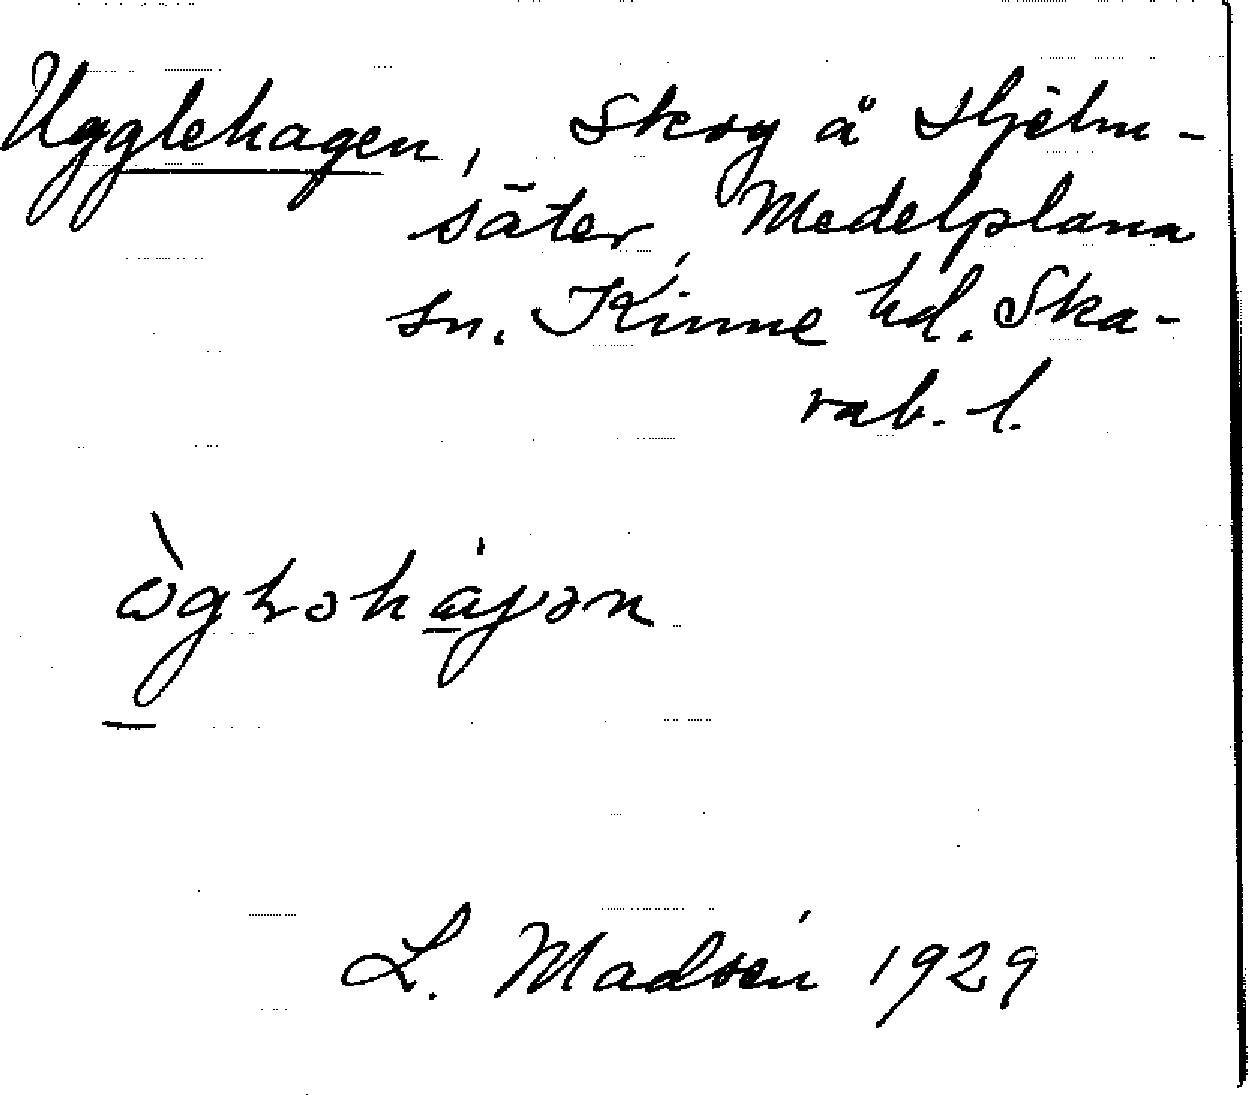 Ugglehagen, Skog å Hjälm-
säter, Medelplana
sn. Kinne hd. Ska-
rab. l.
L. Madsén 1929